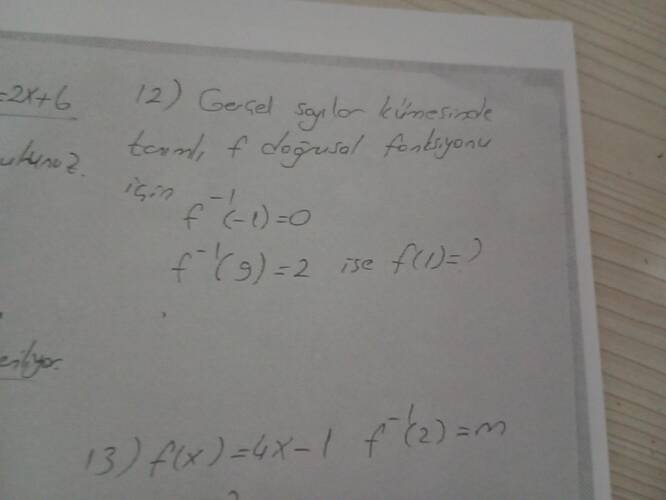 =2x+6
12) Gerçel sayılar kümesinde
tanımlı f doğrusal fonksiyonu
için
f⁻¹(-1)=0
f⁻¹(9)=2 ise f(1)=?
13) f(x)=4x-1 f⁻¹(2)=m